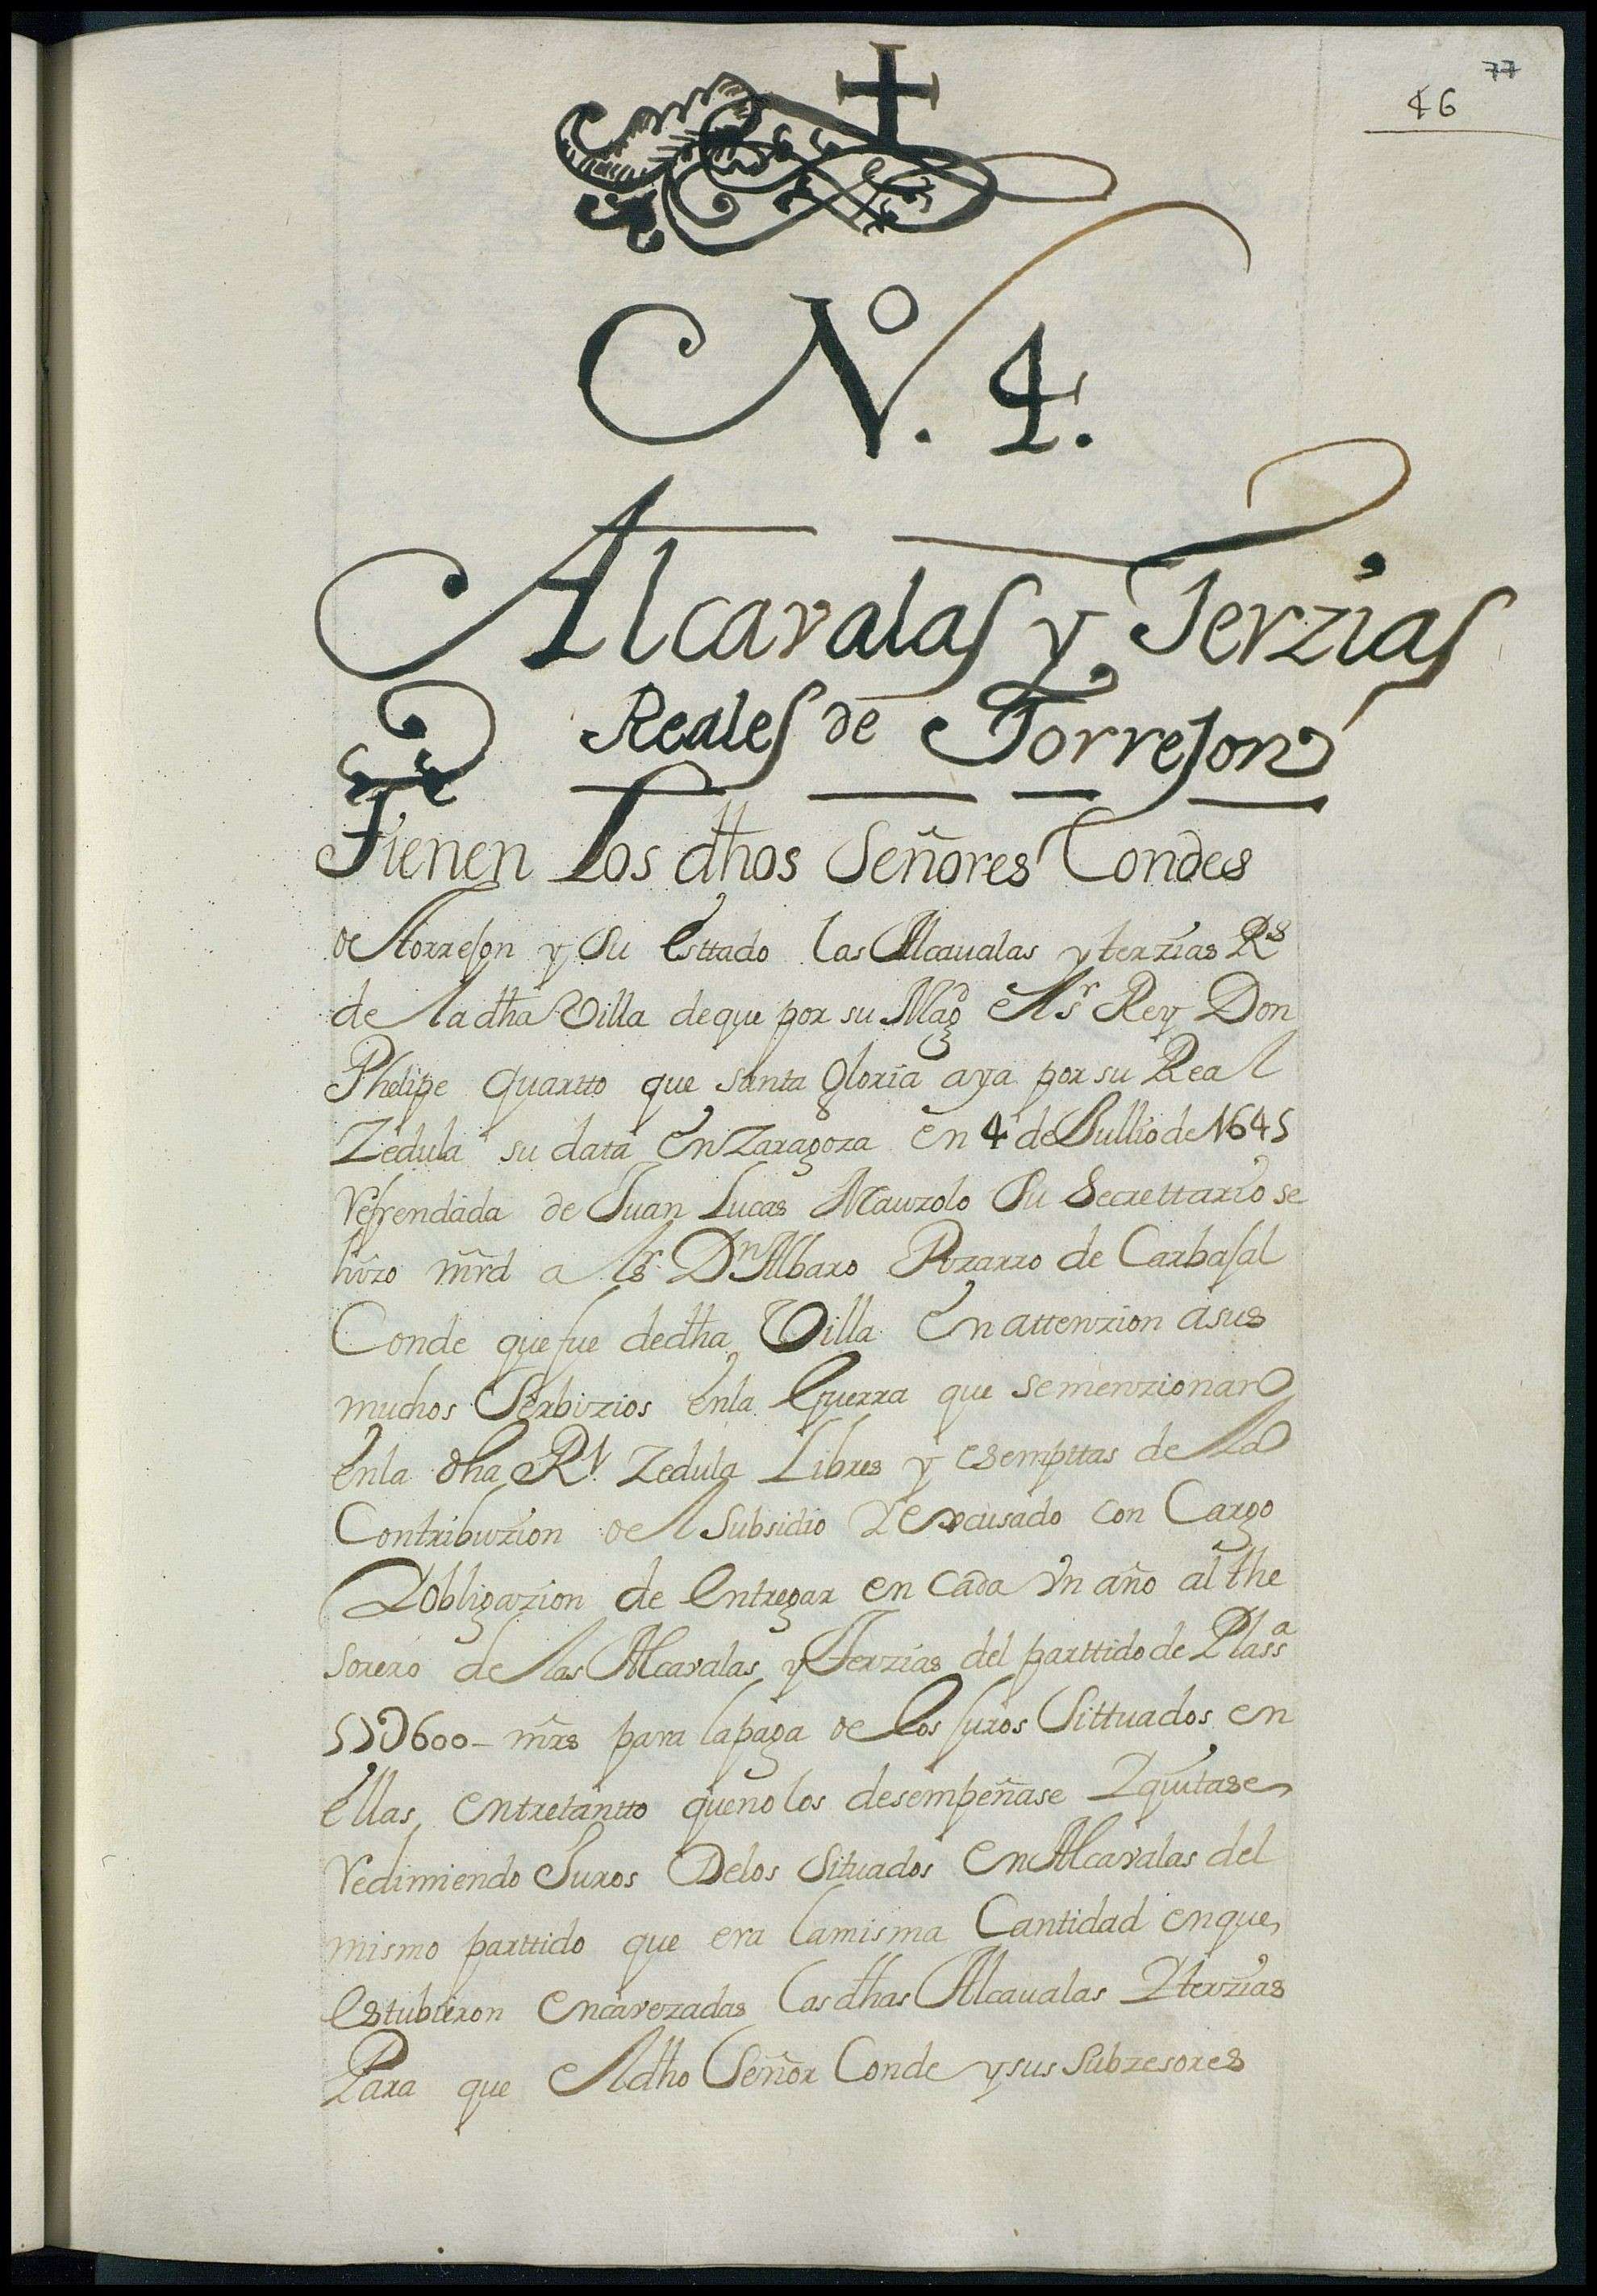 77
46
N.º 4.
Alcavalas y Terzias
Reales de Torrejon
Tienen Los dhos Señores Condes
de Torrejon y Su Esttado las Alcaualas y terzias Rs
de la dha Villa de que por su Magd el Sr Rey Don
Phelipe quartto que santa gloria aya por su Real
Zedula su data en Zaragoza en 4 de Jullio de 1645
refrendada de Juan Lucas Su Secrettario se
hizo mrd al sr Dn Albaro Pizarro de Carbajal
Conde que fue de dha Villa en attenzion a sus
muchos Serbizios en la Guerra que se menzionan
en la dha Rl Zedula Libres y esempttas de la
Contribuzion del Subsidio Y Excusado con Cargo
Y obligazion de Entregar en Cada Vn año al the
sorero de las Alcavalas y Terzias del parttido de Plassa
55U600 - mrs para la paga de los juros Sittuados en
ellas, entretantto que no los desempeñase Y quitase
redimiendo Juros De los Situados en Alcavalas del
mismo parttido que era la misma Cantidad en que
estubieron encavezadas las dhas Alcaualas Y terzias
Para que el dho Señor Conde y sus Subzesores